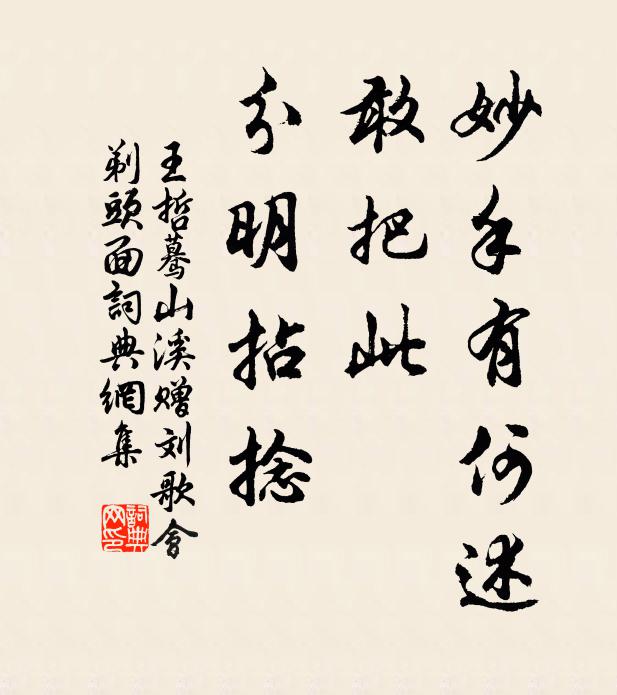 妙手有何述
敢把此
分明拈捻
王哲蓦山溪赠刘歌會
剃頭面詞典網集
詞典网印